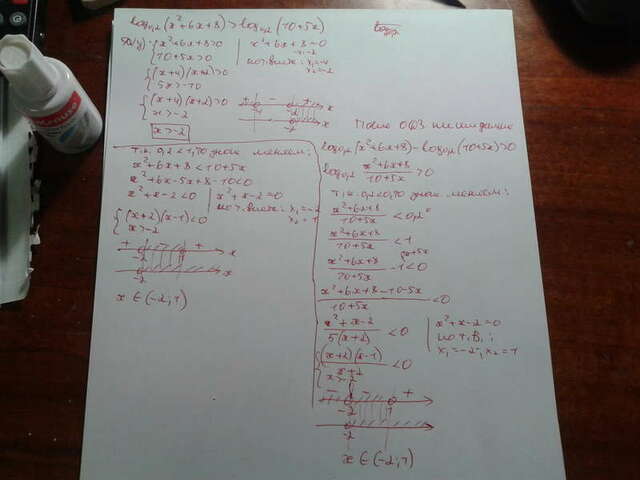 log₀,₂(x²+6x+8)>log₀,₂(10+5x)
{x²+6x+8>0
10+5x>0
x²+6x+8=0
x₁=-4
x₂=-2
{(x+4)(x+2)>0
5x>-10
{(x+4)(x+2)>0
x>-2
x>-2
Т.к. 0,2<1, то знак меняем:
x²+6x+8<10+5x
x²+6x-5x+8-10<0
x²+x-2<0
x²+x-2=0
x₁=-2
x₂=1
{(x+2)(x-1)<0
x>-2
+ - + x
-2 1
x
-2
x ∈ (-2;1)
После ОДЗ
log₀,₂(x²+6x+8)-log₀,₂(10+5x)>0
log₀,₂ (x²+6x+8)/(10+5x) >0
Т.к. 0,2<1, то знак меняем:
(x²+6x+8)/(10+5x) <0,2⁰
(x²+6x+8)/(10+5x) <1
(x²+6x+8)/(10+5x) -1<0
(x²+6x+8-10-5x)/(10+5x) <0
(x²+x-2)/(5(x+2)) <0
x²+x-2=0
по т.В.:
x₁=-2; x₂=1
{((x+2)(x-1))/(x+2) <0
x>-2
- - +
-2 1
-2
x ∈ (-2;1)